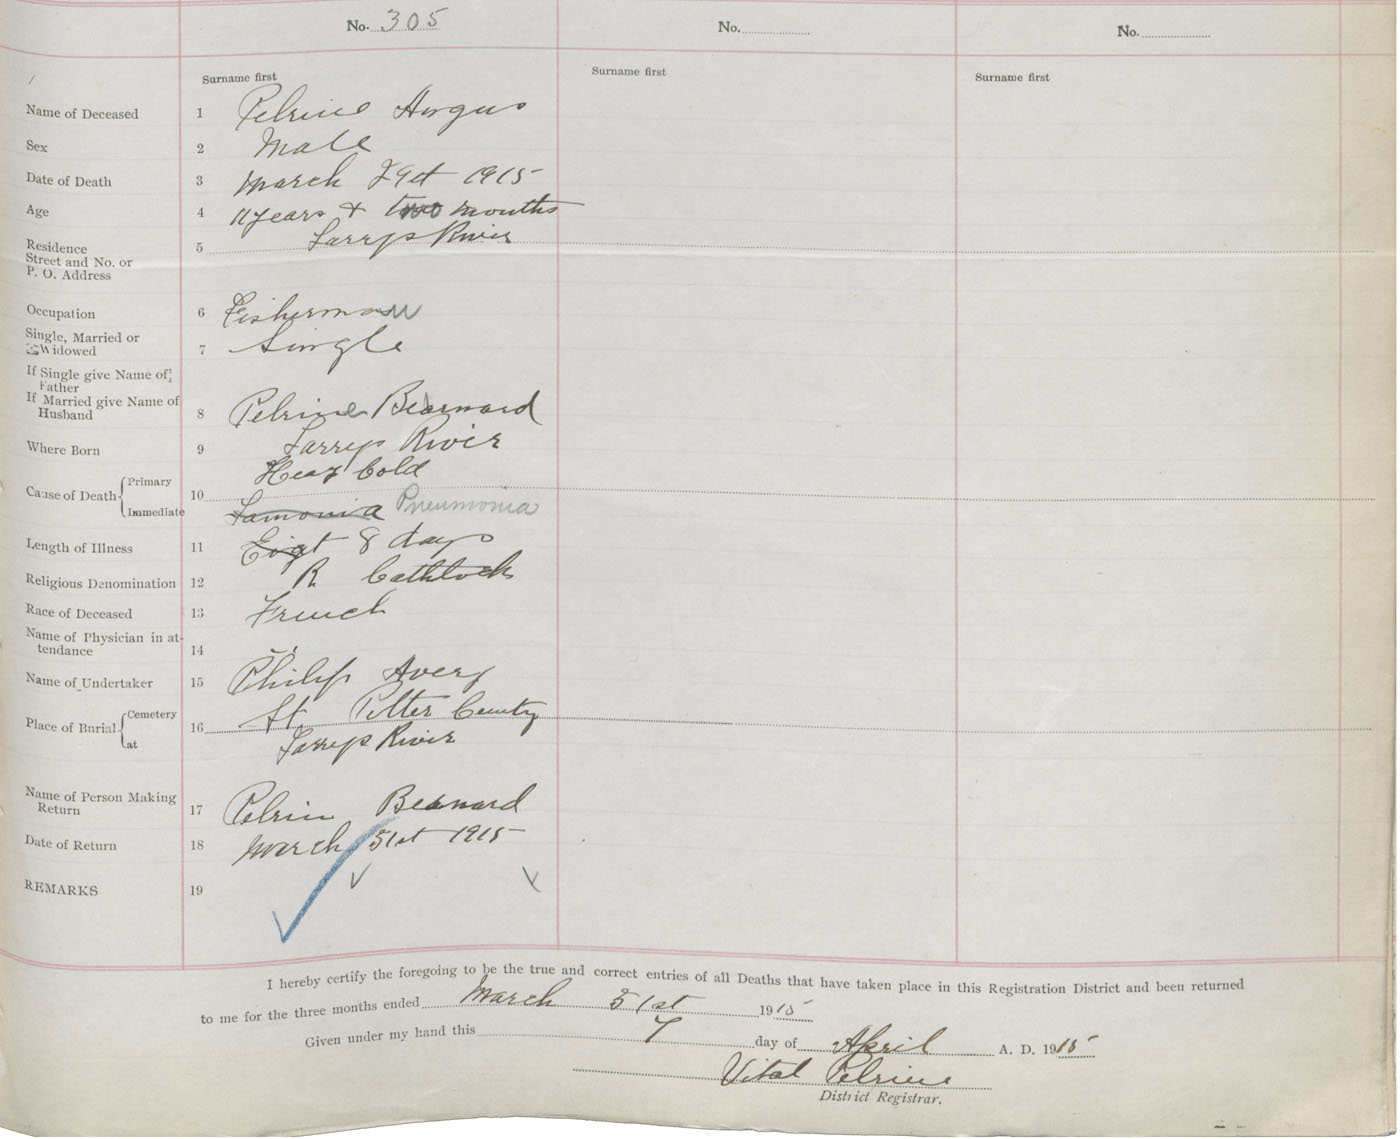 No. 305 No. No.
Surname first Surname first Surname first
Name of Deceased 1 Pelrine Angus
Sex 2 Male
Date of Death 3 March 29st 1915
Age 4 11 years & two months
Residence 5 Larrys River
Street and No. or
P. O. Address
Occupation 6 Fisherman
Single, Married or
Widowed 7 Single
If Single give Name of
Father
If Married give Name of
Husband 8 Pelrine Bearnard
Where Born 9 Larrys River
Cause of Death Primary Heaz Cold
10
Immediate Lamonia Pneumonia
Length of Illness 11 Eigt 8 days
Religious Denomination 12 R Cathlock
Race of Deceased 13 French
Name of Physician in at-
tendance 14
Name of Undertaker 15 Philip Avery
Place of Burial Cemetery 16 St. Petter County
at Larrys River
Name of Person Making
Return 17 Pelrin Bearnard
Date of Return 18 March 31st 1915
REMARKS 19
I hereby certify the foregoing to be the true and correct entries of all Deaths that have taken place in this Registration District and been returned
to me for the three months ended March 31st 1915
Given under my hand this 7 day of April A. D. 1915
Vital Pelrine
District Registrar.